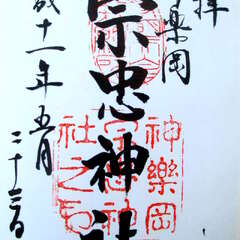 拜
神樂岡
宗忠神社
成十一年五月
二十三日
神樂岡
宗忠神
社之印